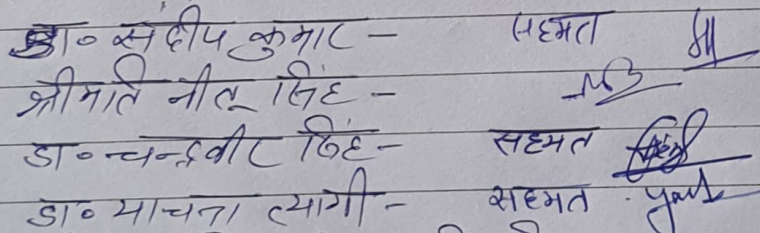 डा० संदीप कुमार - सहमत
श्रीमति नीतू सिंह -
डा० चन्द्रवीर सिंह - सहमत
डा० याचना त्यागी - सहमत